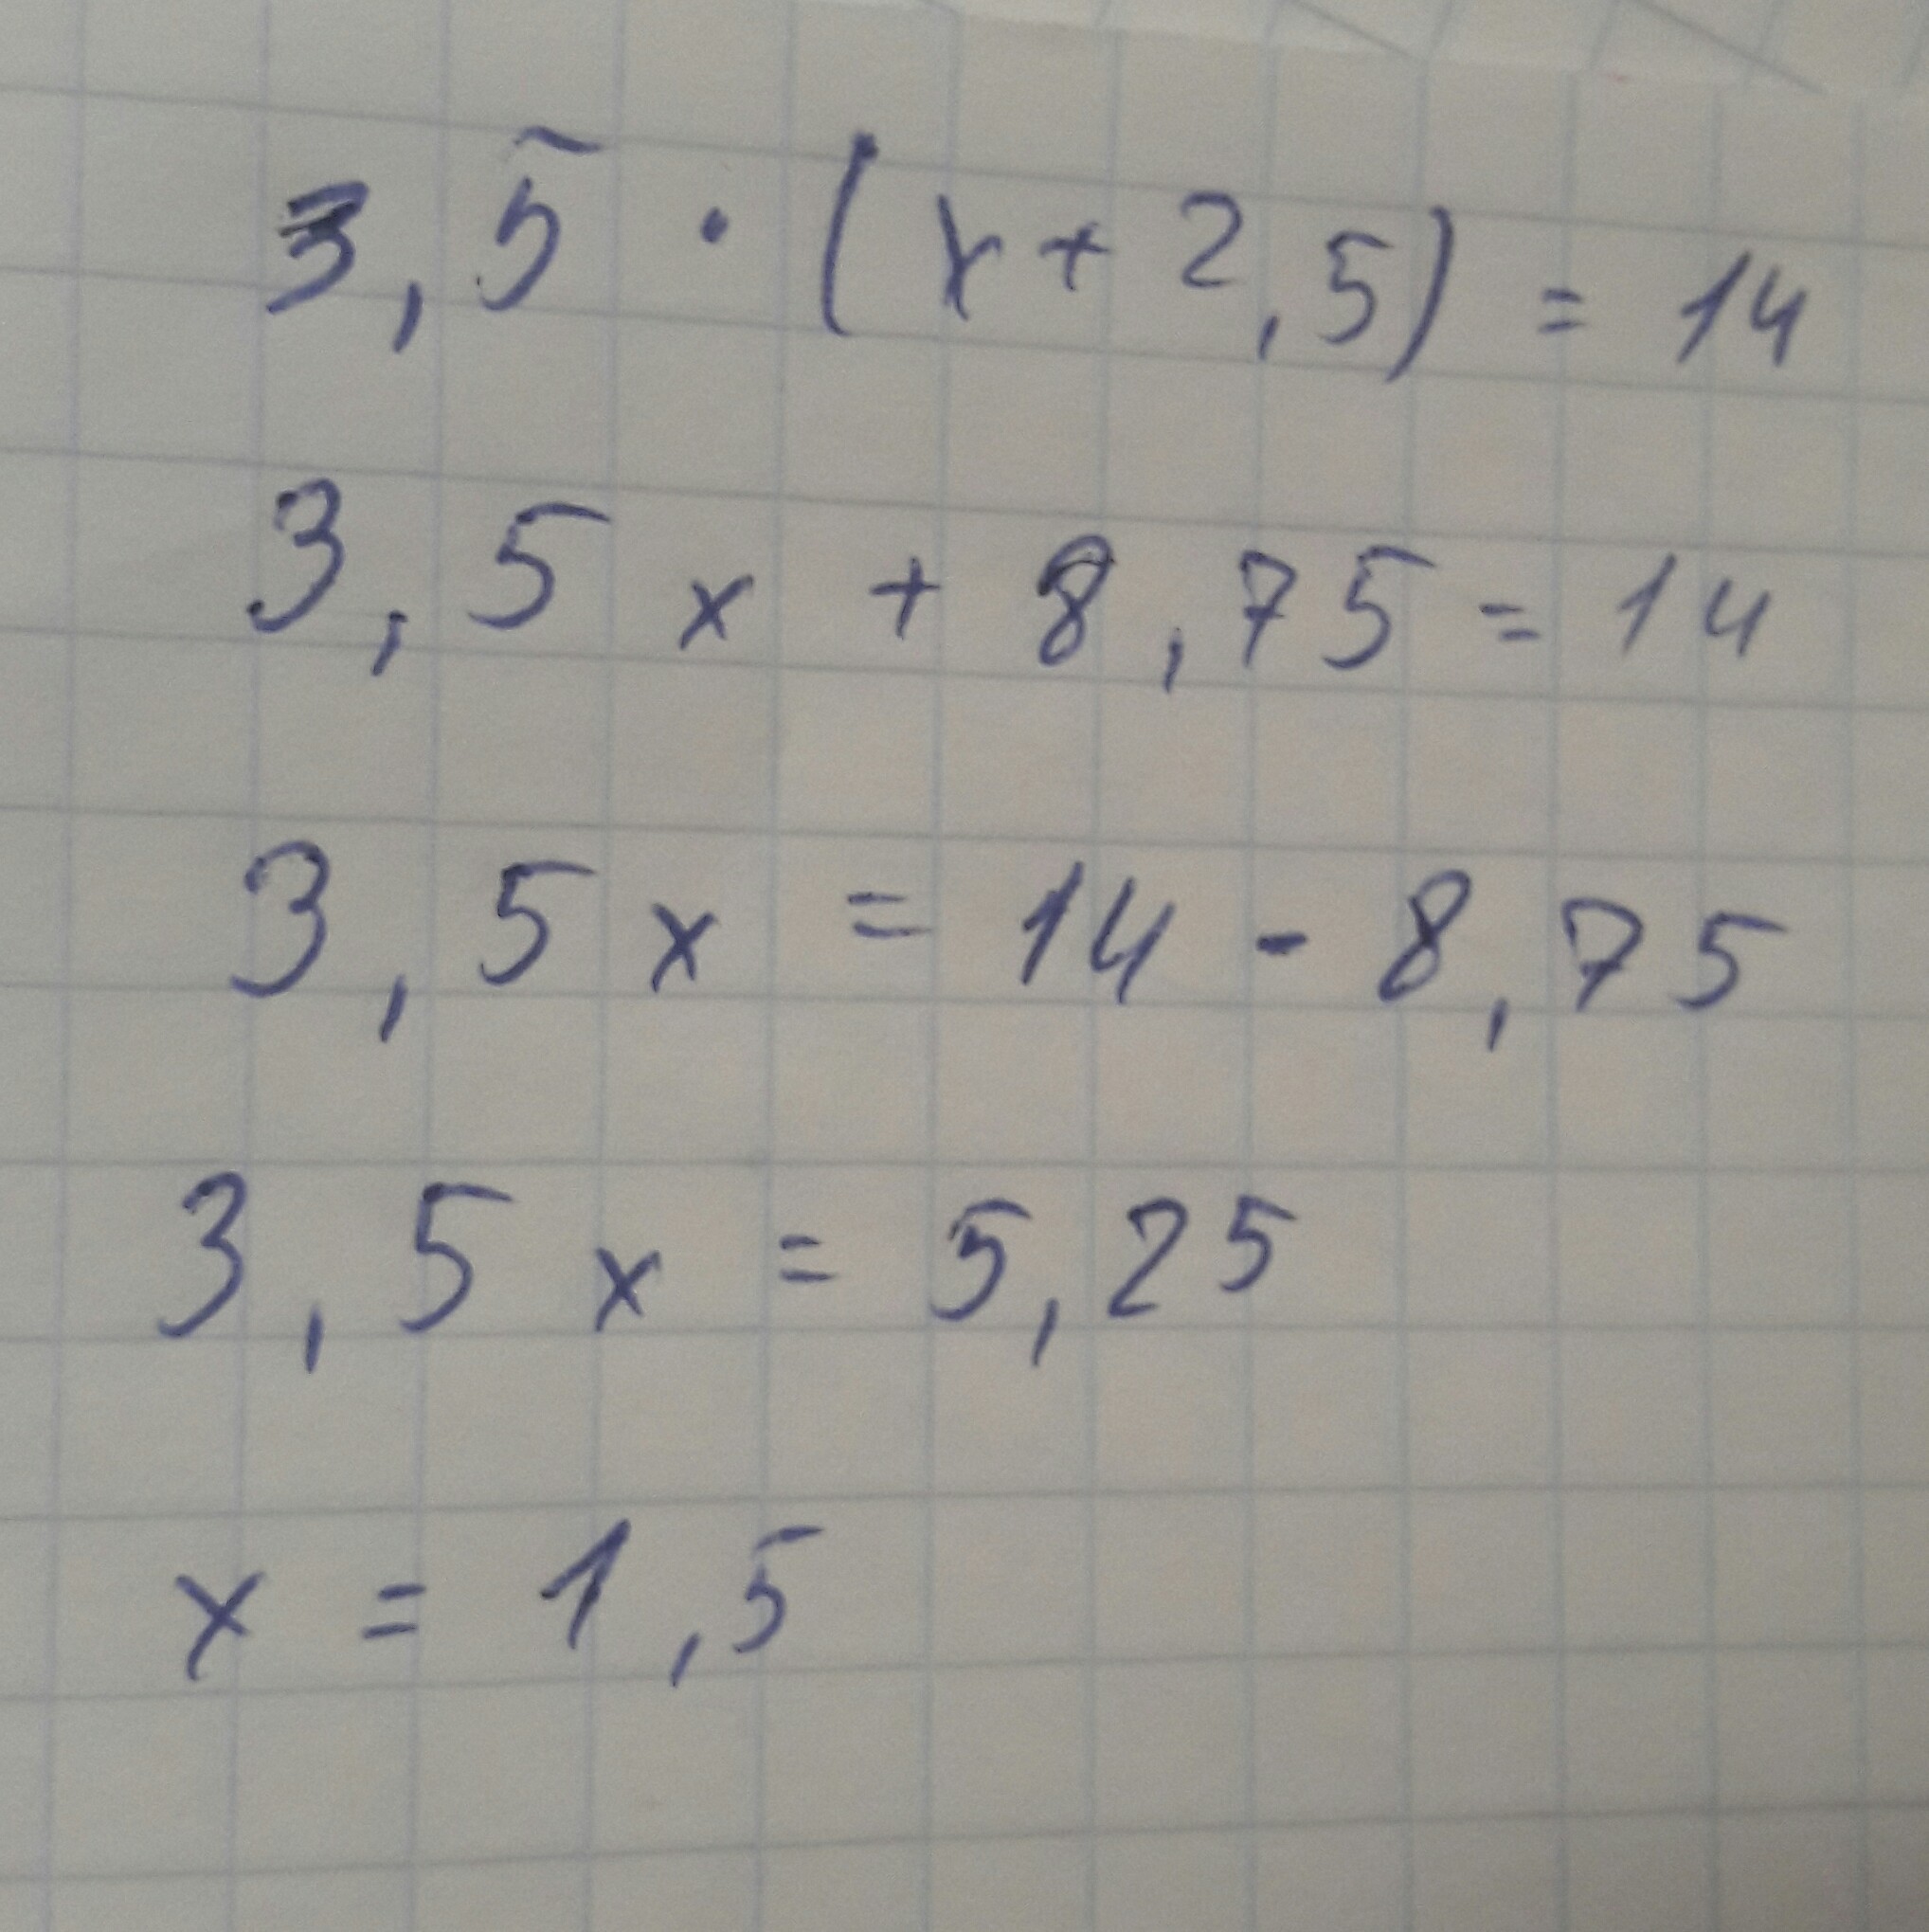 3,5 · (x + 2,5) = 14
3,5x + 8,75 = 14
3,5x = 14 - 8,75
3,5x = 5,25
x = 1,5